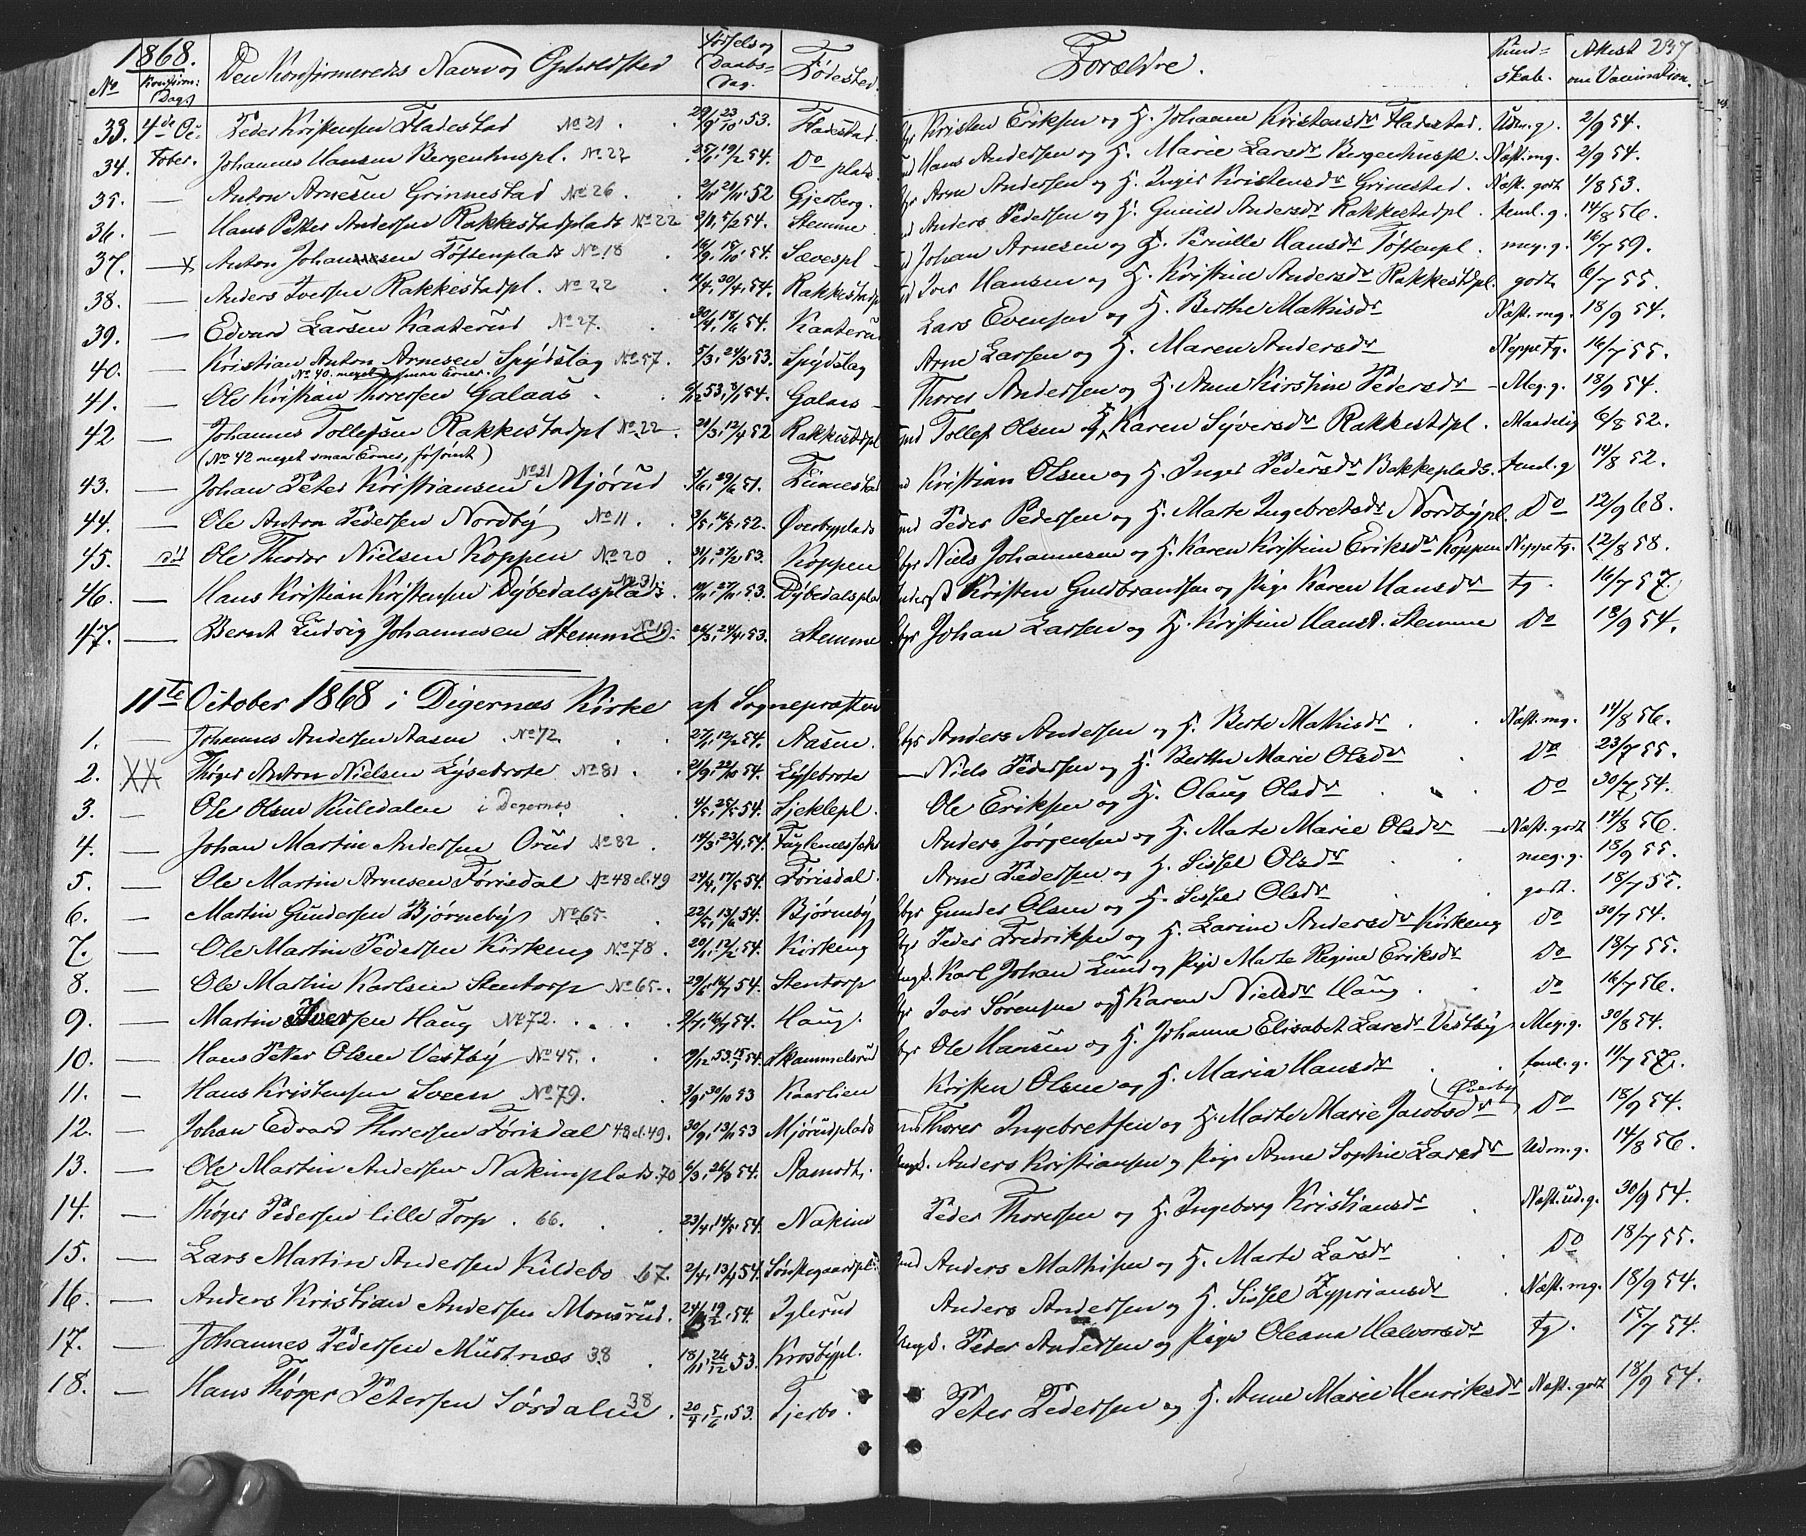 1868.
No Konfirm: Dag. Den Konfirmeredes Navn og Opholdsted Fødsels og Daabs-Dag. Fødested Forældre. Kund-skab. Attest om Vaccination. 237
33. 4de Oc- Peder Kristensen Fladestad No 21 . 29/9, 23/10, 53. Fladestad Kristen Eriksen og H. Johanne Kristensdr Fladestad. Udm. g. 2/9 54.
34. tober. Johannes Hansen Bergenhuspl. No 22 19/2 54. Do plads Hans Andersen og H. Marie Larsdr Bergenhuspl. Næst. mg. 2/9 54.
35. — Anton Arnesen Grinnestad No 26 . 52 Gjerberg. Arne Andersen og H. Inger Kristensdr Grinestad. Næst. godt 4/8 53.
36. — Hans Petter Andersen Rakkestadplads No 22 5/2 54. Stemme Anders Pedersen og H. Gunild Andersdr Rakkestadpl. teml. g. 14/8 56.
37. — x Anton Johannesen Toftenplads No 18 . 18/10, 54. Sævespl Johan Arnesen og H. Pernille Hansdr Toftenpl. meg. g. 16/7 59.
38. — Anders Iversen Rakkestadpl. No 22 . 11/4, 30/4, 54. Rakkestadp Iver Hansen og H. Kristine Andersdr Rakkestdpl. godt 6/7 55.
39. — Edvard Larsen Kaaterud No 27. . 30/4, 18/6 54. Kaaterud Lars Evensen og H. Berthe Mathisdr Næst. mg. 18/9 54.
40. — Kristian Anton Arnesen Spydslag No 57. 5/3, 24/3, 53. Spydslag Arne Larsen og H. Maren Andersdr Neppe tg. 16/7 55.
No 40. meget smaa Evner.
41. — Ole Kristian Thoresen Galaas . 53, 54. Galaas — Thores Andersen og H. Anne Kirstine Pedersdr — Meg. g. 18/9 54.
42 — Johannes Tollefsen Rakkestadpl No 22 . 20/3, 12/4 52 Rakkestadpl Tollef Olsen og H. Karen Syversdr Rakkestdpl. Maadelig 6/8 52.
(No 42 meget smaa Evner, forsømt)
43. — Johan Peter Kristiansen No 21 Mjørud 3/6, 29/6 51. Kristian Olsen og H. Inger Pedersdr Bakkeplads. teml. g 14/8 52.
44. — Ole Anton Pedersen Nordby No 11 . 3/5, 16/5, 52. Øverbyplads Peder Pedersen og H. Marte Ingebretsdr Nordbypl. Do 12/9 68.
45. Ole Theodor Nielsen Koppen No 20 . 31/1, 27/2 53. Koppen Niels Johannesen og H. Karen Kristine Eriksdr Koppen Neppe tg. 12/8 58.
46. — Hans Kristian Kristensen Dybedalsplads No 31. 27/11, 53. Dybedalspla Kristen Guldbrandsen og Pige Karen Hansdr — tg. 16/7 57.
47. — Bernt Ludvig Johannesen Stemme No 19. 26/3, 24/4, 53. Stemme Johan Larsen og H. Kristine Hansd. Stemme Do 18/9 54.
11te October 1868 i Degernæs Kirke af Sognepræsten
1. — Johannes Andersen Aasen No 72. . . 27/1, 12/2 54. Aasen. Anders Andersen og H. Berte Mathisdr . . Næst. mg. 14/8 56.
2. XX Thøger Anton Nielsen Lysebrote No 81 . 2/9, 22/10 54. Lysebrote — Niels Pedersen og H. Berthe Marie Olsdr Do 23/7 55.
3. — Ole Olsen Kuledalen i Degernæs . . 4/5, 25/5 54. Sjeklepl. Ole Eriksen og H. Olaug Olsdr . . Do 30/7, 54.
4. — Johan Martin Andersen Orud No 82 . 14/3, 23/4, 54. Fuglenessæt Anders Jørgensen og H. Marte Marie Olsdr — Næst. godt 14/8 56.
5. — Ole Martin Arnesen Førisdal No 48 el. 49 24/4, 17/5 54. Førisdal. Arne Pedersen og H. Sissel Olsdr . . meg. g. 18/9 55.
6. — Martin Gundersen Bjørneby No 65. . 22/5, 13/6, 54. Bjørneby Gunder Olsen og H. Sissel Olsdr . godt. 18/7 55.
7. — Ole Martin Pedersen Kirkeng No 78 . 20/1, 12/2 54. Kirkeng Peder Fredriksen og H. Larine Andersdr Kirkeng Do 30/7 54.
8. — Ole Martin Karlsen Stentorp No 65. . 29/6, 16/7 54. Stentorp Karl Johan Lund og Pige Marte Regine Eriksdr Do 18/7 55.
9. — Martin Iversen Haug No 72. . . . 9/7, 16/7, 54. Haug. Iver Sørensen og H. Karen Nielsdr Haug . . Do 16/7 56.
10. — Hans Petter Olsen Vestby No 45. . 9/12 53, 54. Skammelsrud Ole Hansen og H. Johanne Elisabet Larsdr Vestby Meg. g. 30/8 54.
11. — Hans Kristensen Sveen No 79. . 3/9, 30/10 53 Kaarlien Kristen Olsen og H. Maria Hansdr . . teml. g. 11/7 57.
12. — Johan Edvard Thoresen Førisdal 48 el. 49. 30/9, 13/11 53 Mjørudplads Thores Ingebretsen og H. Marte Marie Jacobsdr (Øverby) Do 18/9 54.
13. — Ole Martin Andersen Nakimplads. 70 6/3, 26/3 54. Aamodt. Anders Kristiansen og Pige Anne Sophie Larsdr — Udm. g. 14/8 56.
14. — Thøger Pedersen lille Torp . 66. . . 23/4, 14/5, 54. Nakim Peder Thoresen og H. Ingeborg Kristiansdr . Næst. ud. g. 30/9 54.
15. — Lars Martin Andersen Kildebo 67. 2/4, 13/4 54. Sønstegaardpl: Anders Mathisen og H. Marte Larsdr . . Do 18/7 55.
16. — Anders Kristian Andersen Monsrud. 54. Iglerud Anders Andersen og H. Sissel Zypriansdr . Næst. mg. 18/9 54.
17. — Johannes Pedersen Mustnæs 38 . 18/11, 26/12 53. Krosbypl. Peter Andersen og Pige Oleana Halvorsdr tg. 15/7 54.
18. — Hans Thøger Petersen Sørdalen 38 . 20/4, 5/6, 53. Tjerbo. Peter Pedersen og H. Anne Marie Henriksdr Næst. godt 18/9 54.